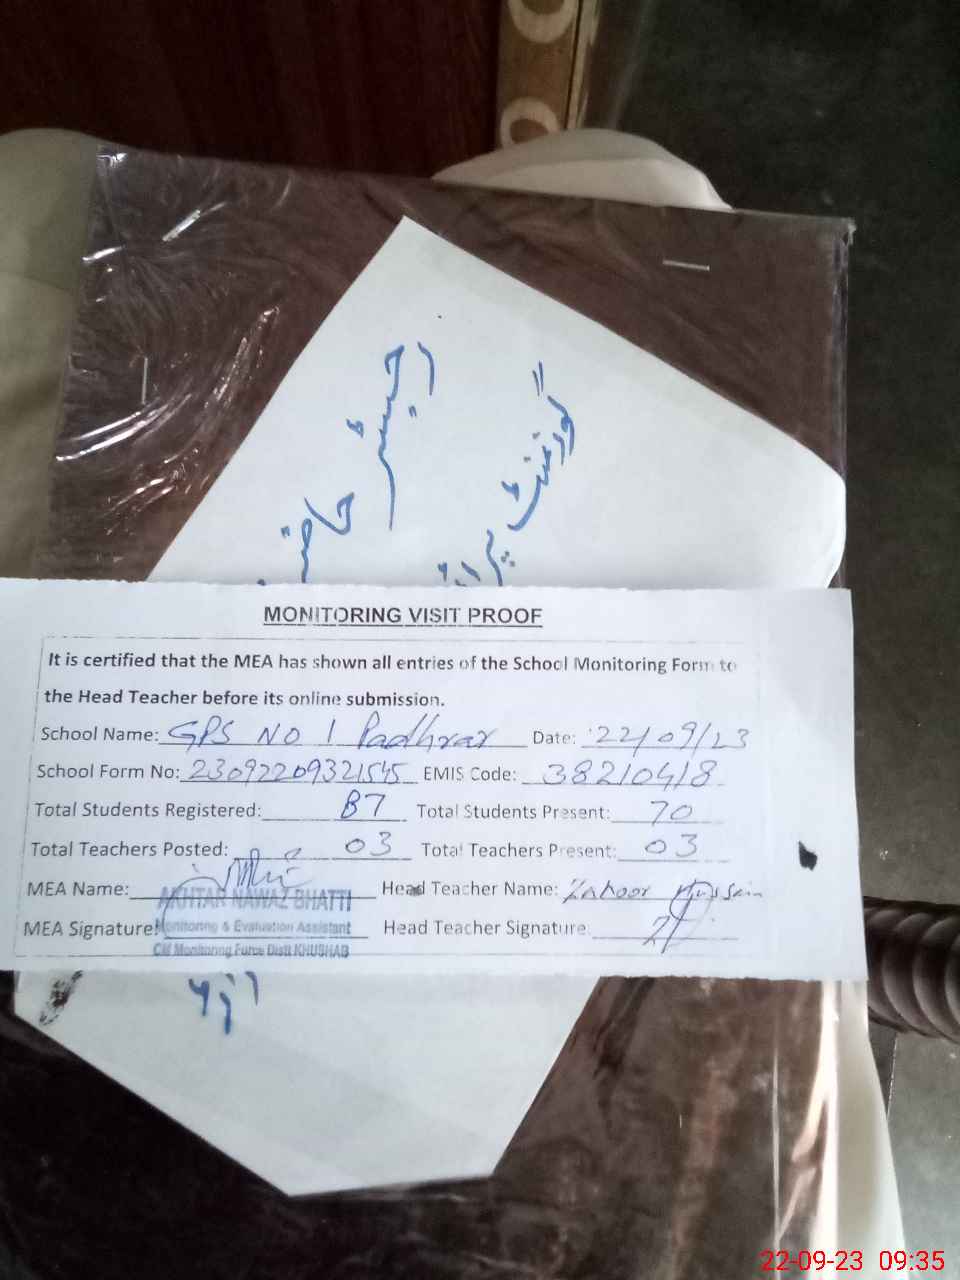 رجسٹر حاضر
گورنمنٹ پرائ
MONITORING VISIT PROOF
It is certified that the MEA has shown all entries of the School Monitoring Form to
the Head Teacher before its online submission.
School Name: GPS NO 1 Padhrar Date: 22/09/23
School Form No: 23092209321545 EMIS Code: 38210418
Total Students Registered: 87 Total Students Present: 70
Total Teachers Posted: 03 Total Teachers Present: 03
MEA Name: AKHTAR NAWAZ BHATTI Head Teacher Name: Zahoor Hussain
MEA Signature: Monitoring & Evaluation Assistant Head Teacher Signature:
CM Monitoring Force Distt KHUSHAB
22-09-23 09:35